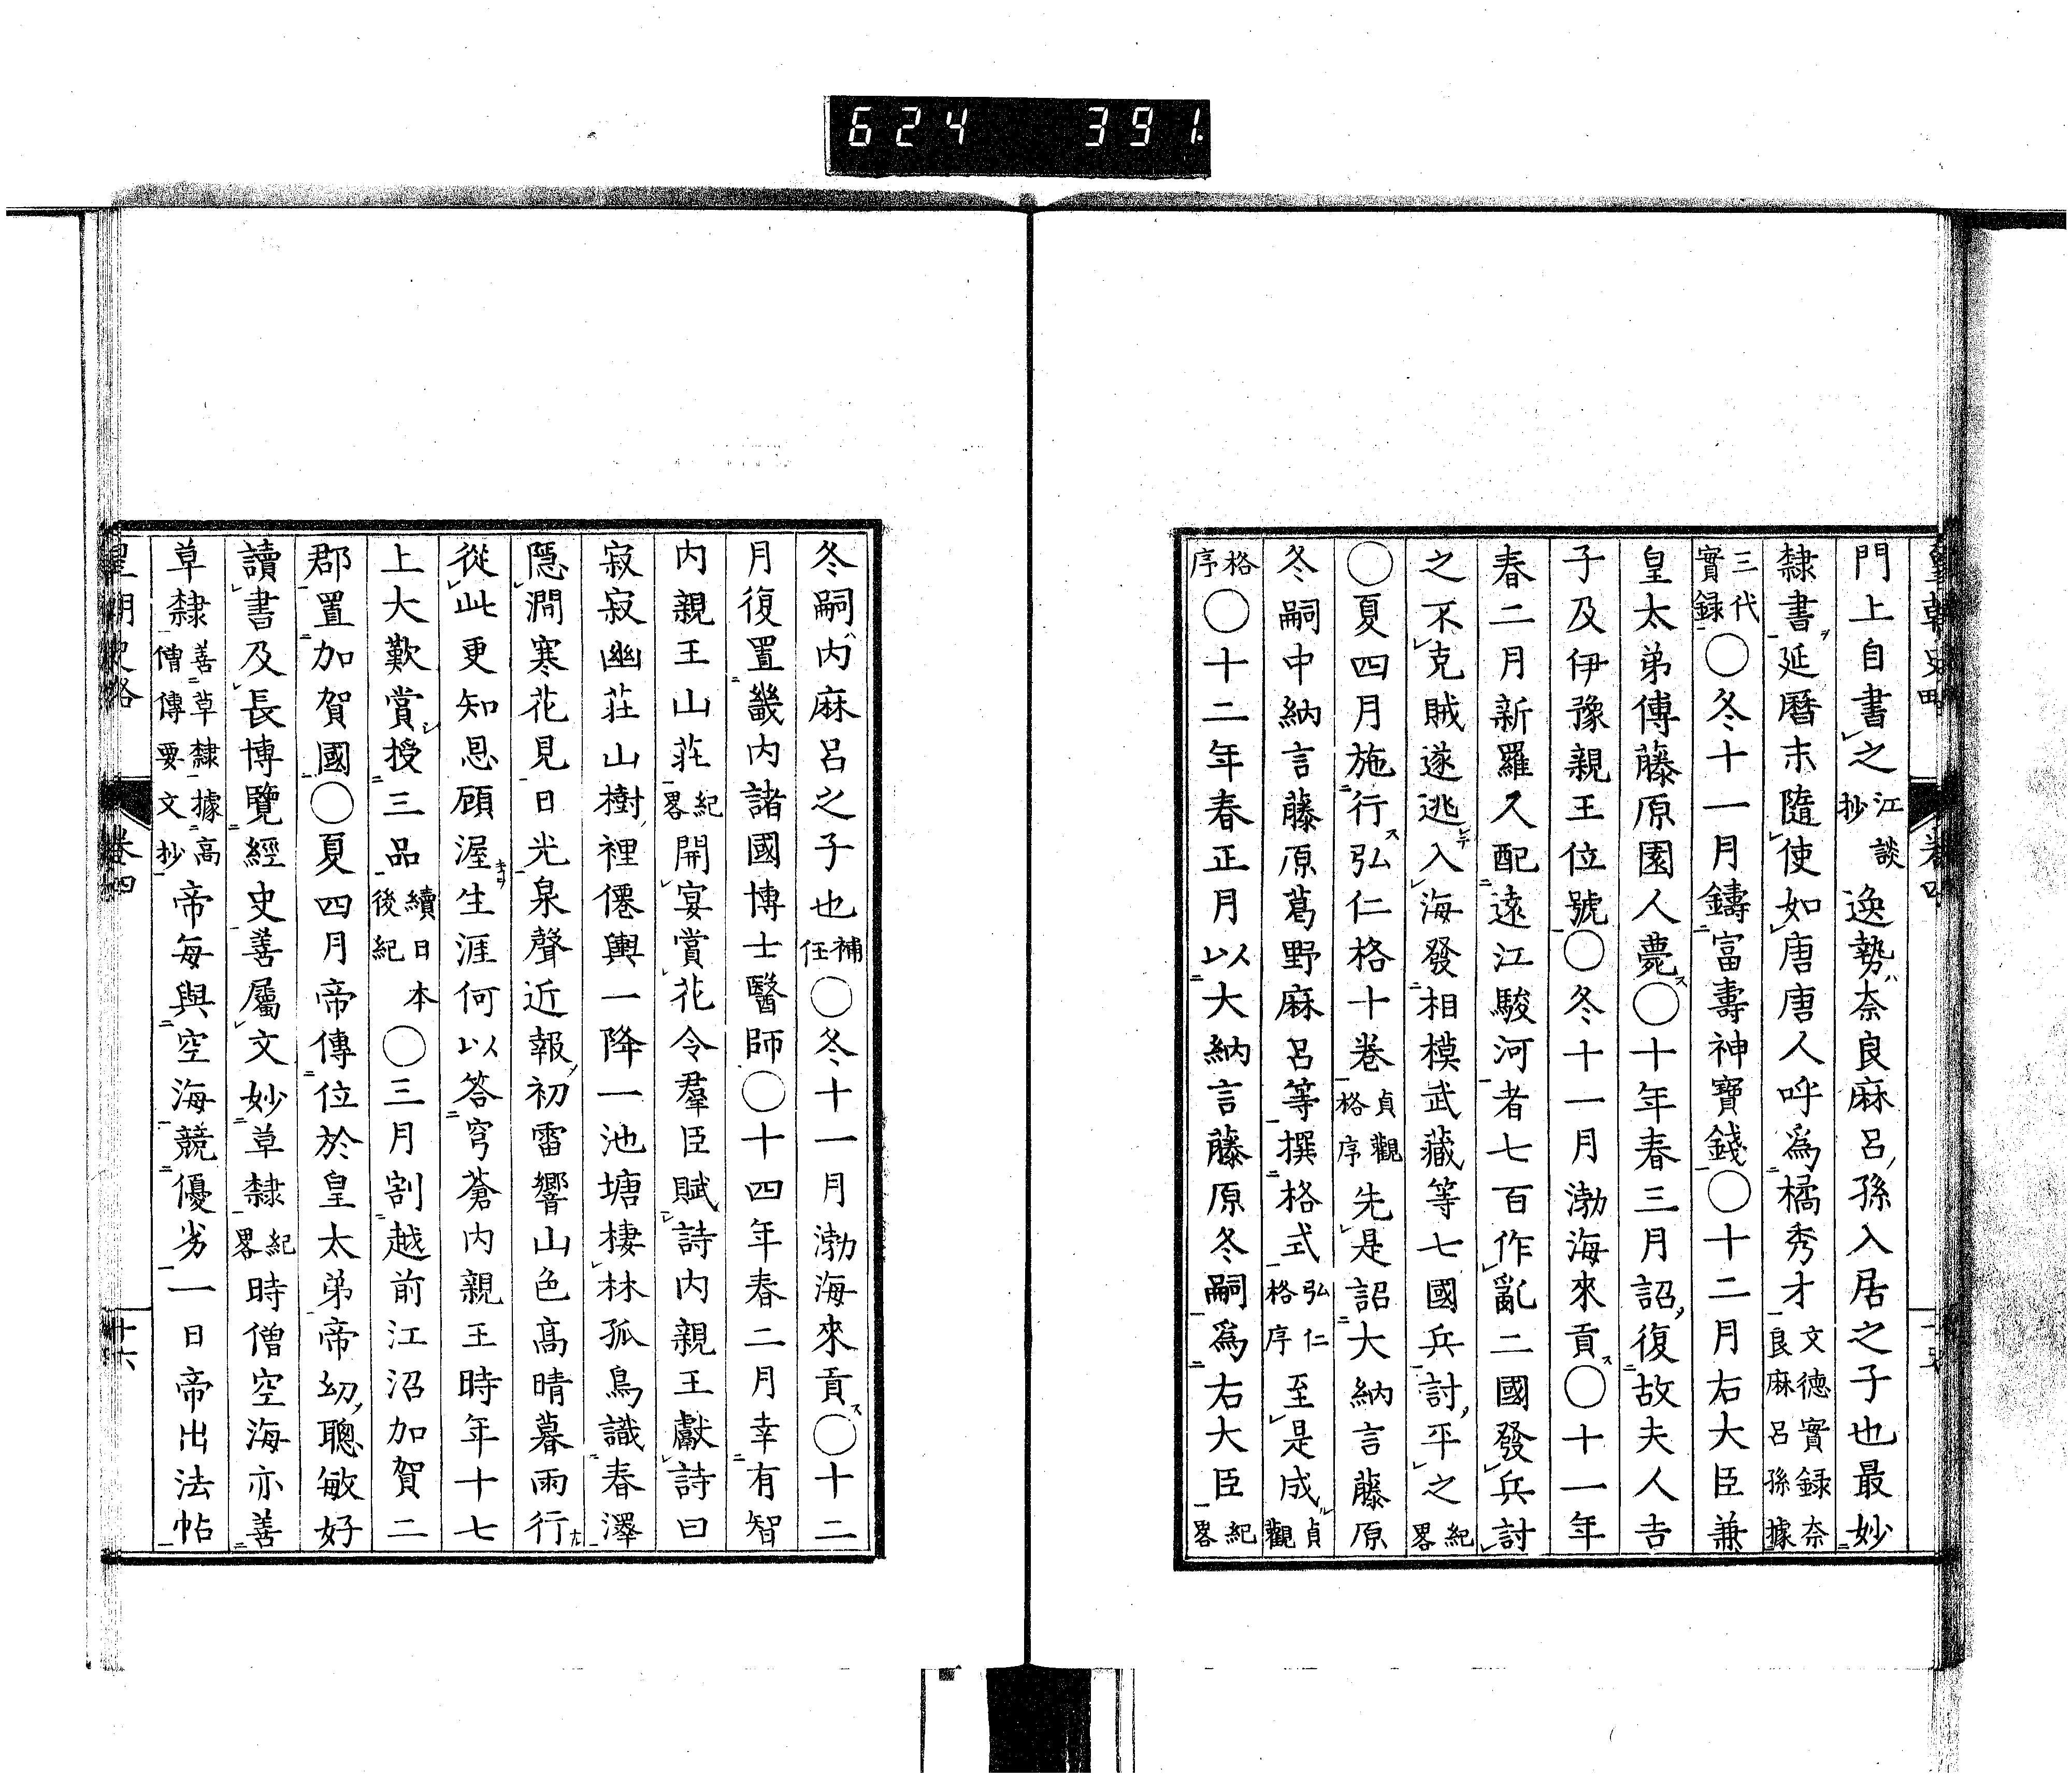 624 391
門上自書之江談抄逸勢奈良麻呂孫入居之子也最妙
隸書延曆末隨使如唐唐人呼爲橘秀才文德實録奈良麻呂孫據
三代實録〇冬十一月鑄富壽神寶錢〇十二月右大臣兼
皇太弟傅藤原園人薨〇十年春三月詔復故夫人吉
子及伊豫親王位號〇冬十一月渤海來貢〇十一年
春二月新羅人配遠江駿河者七百作亂二國發兵討
之不克賊遂逃入海發相模武藏等七國兵討平之紀畧
〇夏四月施行弘仁格十卷貞觀格序先是詔大納言藤原
冬嗣中納言藤原葛野麻呂等撰格式弘仁格序至是成貞觀
格序〇十二年春正月以大納言藤原冬嗣爲右大臣紀畧
冬嗣内麻呂之子也補任〇冬十一月渤海來貢〇十二
月復置畿内諸國博士醫師〇十四年春二月幸有智
内親王山莊紀畧開宴賞花令羣臣賦詩内親王獻詩曰
寂寂幽莊山樹裡僊輿一降一池塘棲林孤鳥識春澤
隱澗寒花見日光泉聲近報初雷響山色高晴暮雨行
從此更知恩顧渥生涯何以答穹蒼内親王時年十七
上大歎賞授三品續日本後紀〇三月割越前江沼加賀二
郡置加賀國〇夏四月帝傳位於皇太弟帝幼聰敏好
讀書及長博覽經史善屬文妙草隸紀畧時僧空海亦善
草隸善草隸據高僧傳要文抄帝每與空海競優劣一日帝出法帖
皇朝史略 卷四 十六